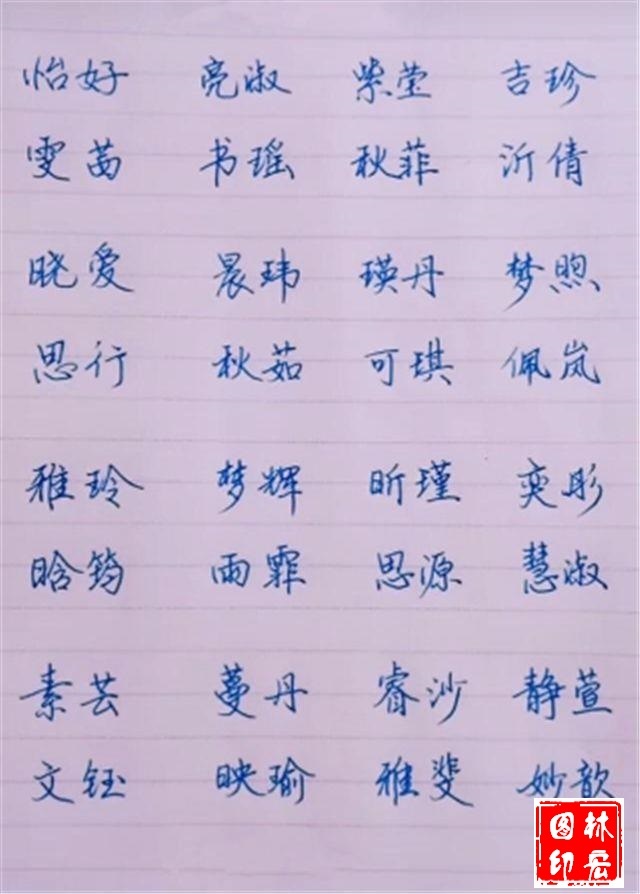 怡好 亮淑 紫莹 吉珍
雯茜 书瑶 秋菲 沂倩
晓爱 晨玮 瑛丹 梦煦
思行 秋茹 可琪 佩岚
雅玲 梦辉 昕瑾 奕彤
晗筠 雨霏 思源 慧淑
素芸 蔓丹 睿沙 静萱
文钰 映瑜 雅斐 妙歆
林宏
图印